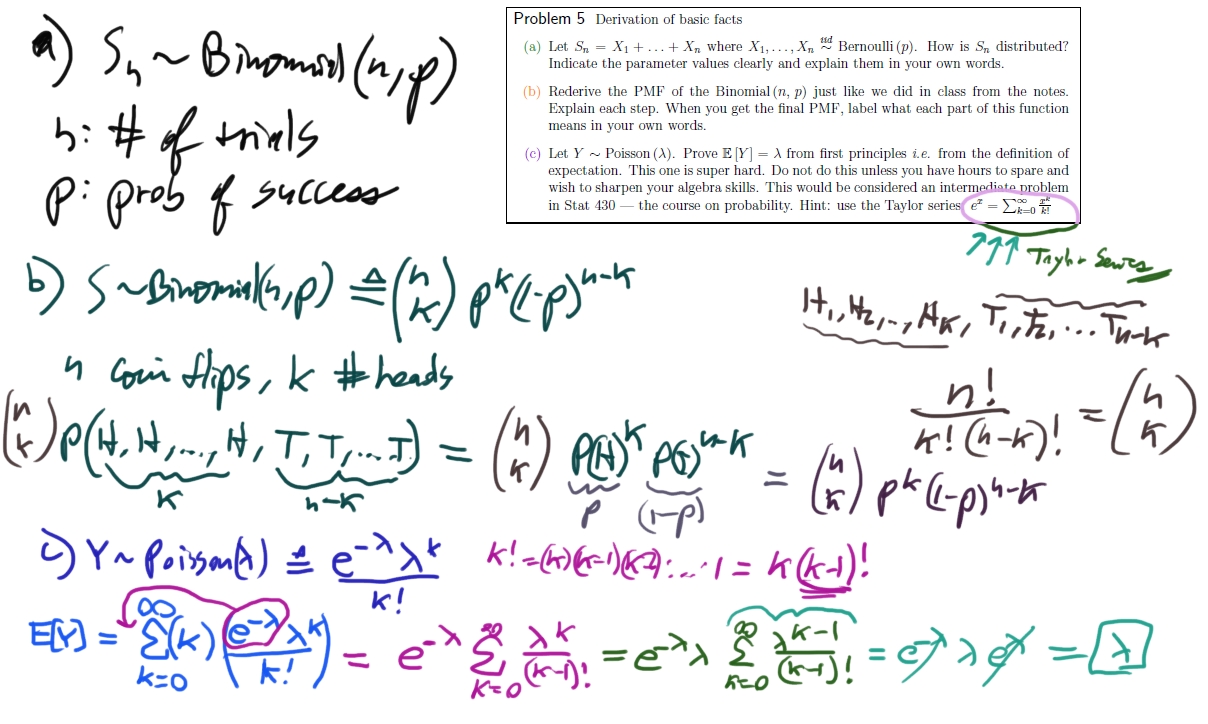 Problem 5 Derivation of basic facts
(a) Let Sₙ = X₁ + ... + Xₙ where X₁, ..., Xₙ iid ~ Bernoulli (p). How is Sₙ distributed?
Indicate the parameter values clearly and explain them in your own words.
(b) Rederive the PMF of the Binomial (n, p) just like we did in class from the notes.
Explain each step. When you get the final PMF, label what each part of this function
means in your own words.
(c) Let Y ~ Poisson (λ). Prove E [Y] = λ from first principles i.e. from the definition of
expectation. This one is super hard. Do not do this unless you have hours to spare and
wish to sharpen your algebra skills. This would be considered an intermediate problem
in Stat 430 — the course on probability. Hint: use the Taylor series eˣ = ∑_{k=0}^{∞} x^k/k!
↑↑↑ Taylor Series
a) Sₙ ~ Binomial(n,p)
n: # of trials
p: prob of success
b) S ~ Binomial(n,p) ≜ (n k) p^k(1-p)^{n-k}
H₁, H₂, .., H_K, T₁, T₂, ... T_{n-k}
n coin flips, k # heads
n!/(k!(n-k)!) = (n k)
(n k) P(H, H, ..., H, T, T, ... T) = (n k) P(H)^k P(T)^{n-k} = (n k) p^k(1-p)^{n-k}
k n-k p (1-p)
c) Y ~ Poisson(λ) ≜ e^{-λ} λ^k / k!
k! = (k)(k-1)(k-2)...·1 = k(k-1)!
E[Y] = ∑_{k=0}^{∞} (k) (e^{-λ} λ^k / k!) = e^{-λ} ∑_{k=0}^{∞} λ^k/(k-1)! = e^{-λ} λ ∑_{k=0}^{∞} λ^{k-1}/(k-1)! = e^{-λ} λ e^{λ} = λ